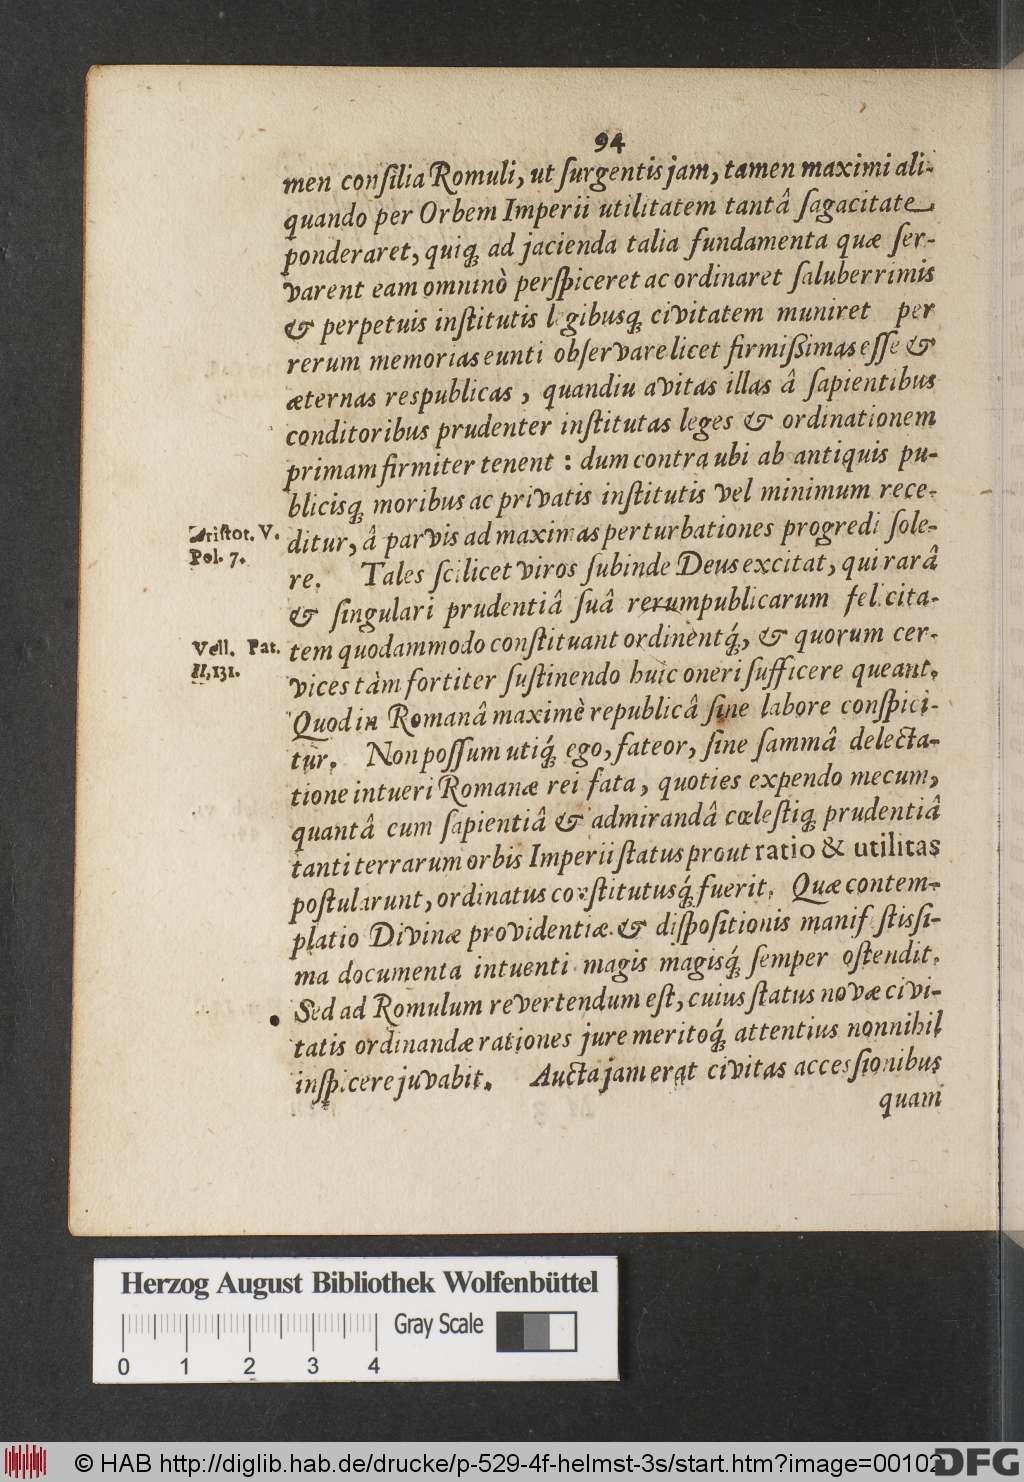 94
men conſilia Romuli, ut ſurgentis jam, tamen maximi ali-
quando per Orbem Imperii utilitatem tantâ ſagacitate
ponderaret, quiq; ad jacienda talia fundamenta quæ ſer-
varent eam omninò perſpiceret ac ordinaret ſaluberrimis
& perpetuis inſtitutis legibusq; civitatem muniret per
rerum memorias eunti obſervare licet firmiſsimas eſſe &
æternas respublicas, quandiu avitas illas â ſapientibus
conditoribus prudenter inſtitutas leges & ordinationem
primam firmiter tenent : dum contra ubi ab antiquis pu-
blicisq; moribus ac privatis inſtitutis vel minimum rece-
Ariſtot. V.
Pol. 7.
ditur, â parvis ad maximas perturbationes progredi ſole-
re. Tales ſcilicet viros ſubinde Deus excitat, qui rarâ
& ſingulari prudentiâ ſuâ rerumpublicarum felicita-
Vell. Pat.
II, 131.
tem quodammodo conſtituant ordinentq́;, & quorum cer-
vices tàm fortiter ſuſtinendo huic oneri ſufficere queant.
Quod in Romanâ maximè republicâ ſine labore conſpici-
tur. Non poſſum utiq́; ego, fateor, ſine ſammâ delecta-
tione intueri Romanæ rei fata, quoties expendo mecum,
quantâ cum ſapientiâ & admirandâ cœleſtiq; prudentiâ
tanti terrarum orbis Imperii ſtatus prout ratio & utilitas
poſtularunt, ordinatus conſtitutusq́; fuerit. Quæ contem-
platio Divinæ providentiæ & diſpoſitionis manifeſtisſi-
ma documenta intuenti magis magisq́; ſemper oſtendit.
Sed ad Romulum revertendum eſt, cuius ſtatus novæ civi-
tatis ordinandæ rationes jure meritoq́; attentius nonnihil
inſpicere juvabit. Aucta jam erat civitas accesſionibus
quam
Herzog August Bibliothek Wolfenbüttel
Gray Scale
0 1 2 3 4
© HAB http://diglib.hab.de/drucke/p-529-4f-helmst-3s/start.htm?image=00102
DFG